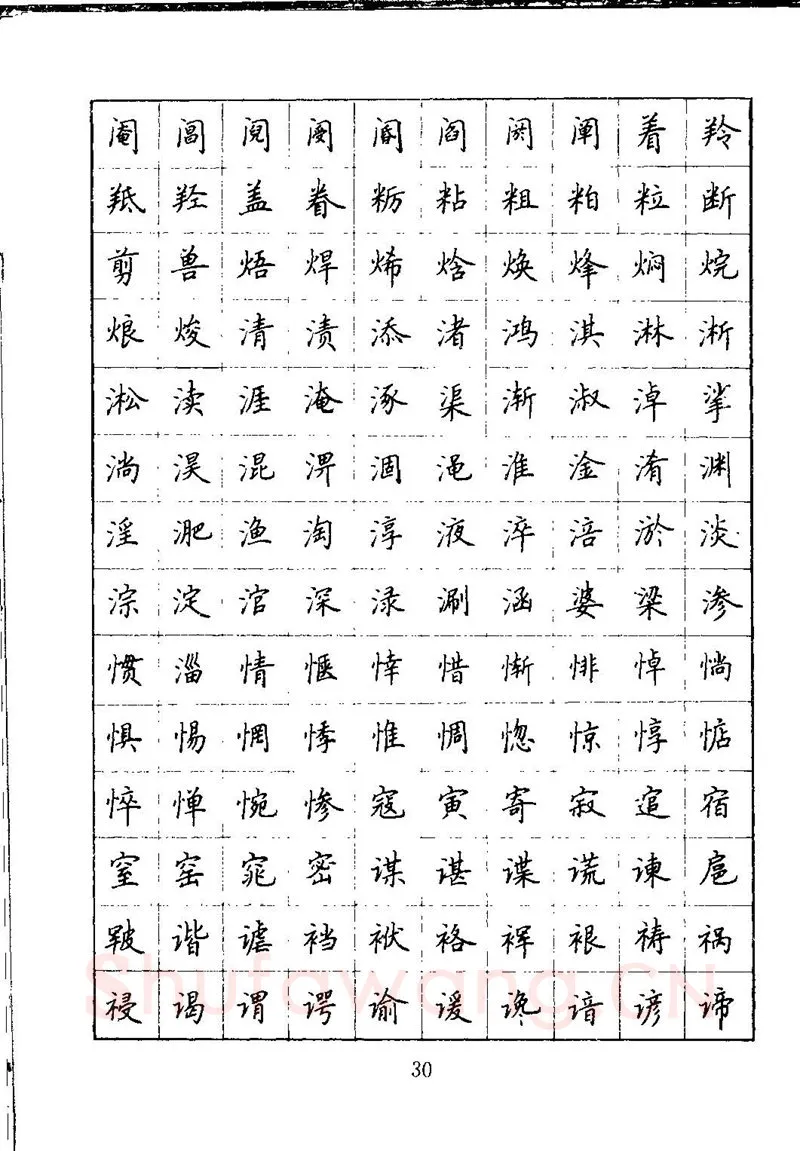 阉 阊 阋 阌 阍 阎 阏 阐 着 羚
羝 羟 盖 眷 粝 粘 粗 粕 粒 断
剪 兽 焐 焊 烯 焓 焕 烽 焖 烷
烺 焌 清 渍 添 渚 鸿 淇 淋 淅
淞 渎 涯 淹 涿 渠 渐 淑 淖 挲
淌 淏 混 淠 涸 渑 淮 淦 淆 渊
淫 淝 渔 淘 淳 液 淬 涪 淤 淡
淙 淀 涫 深 渌 涮 涵 婆 梁 渗
惯 淄 情 惬 悻 惜 惭 悱 悼 惝
惧 惕 惘 悸 惟 惆 惚 惊 惇 惦
悴 惮 惋 惨 寇 寅 寄 寂 逭 宿
窒 窑 窕 密 谋 谌 谍 谎 谏 扈
皲 谐 谑 裆 袱 袼 裈 裉 祷 祸
祲 谒 谓 谔 谕 谖 谗 谙 谚 谛
Shufawang.CN
30